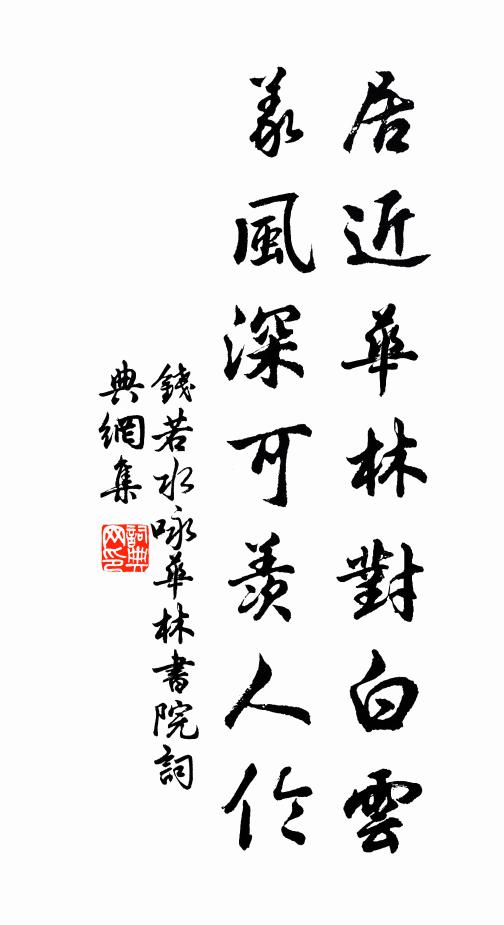 居近華林對白雲
義風深可羨人倫
錢若水咏華林書院詞
典網集
詞典
网印